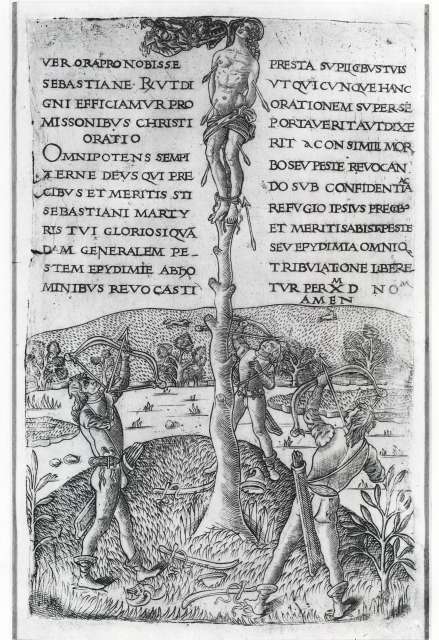 VER ORA PRO NOBIS SE
SEBASTIANE· R VT DI
GNI EFFICIAMVR PRO
MISSONIBVS CHRISTI
ORATIO
OMNIPOTENS SEMPI
TERNE DEVS QVI PRE
CIBVS ET MERITIS STI
SEBASTIANI MARTY
RIS TVI GLORIOSI QVĀ
DAM GENERALEM PE-
STEM EPYDIMIE ABDO
MINIBVS REVOCASTI
PRESTA SVPLICIBVS TVIS
VT QVICVNQVE HANC
ORATIONEM SVPER SE
PORTAVERIT AVT DIXE
RIT CONSIMILI MOR
BO SEV PESTE REVOCAN
DO SVB CONFIDENTIA
REFVGIO IPSIVS
ET MERITIS AB ISTA PESTE
SEV EPYDIMIA OMNIQ
TRIBVLATONE LIBERE
TVR PER XM D NOM
AMEN